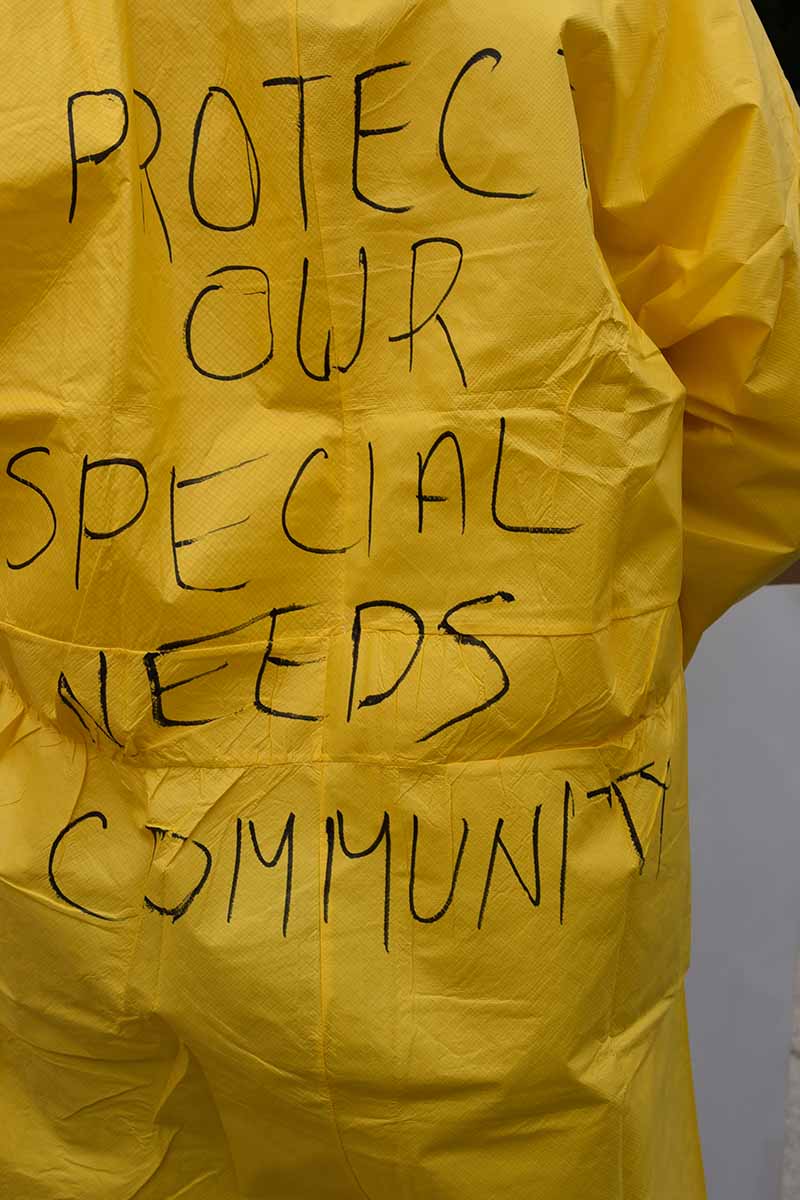 PROTECT
OUR
SPECIAL
NEEDS
COMMUNITY